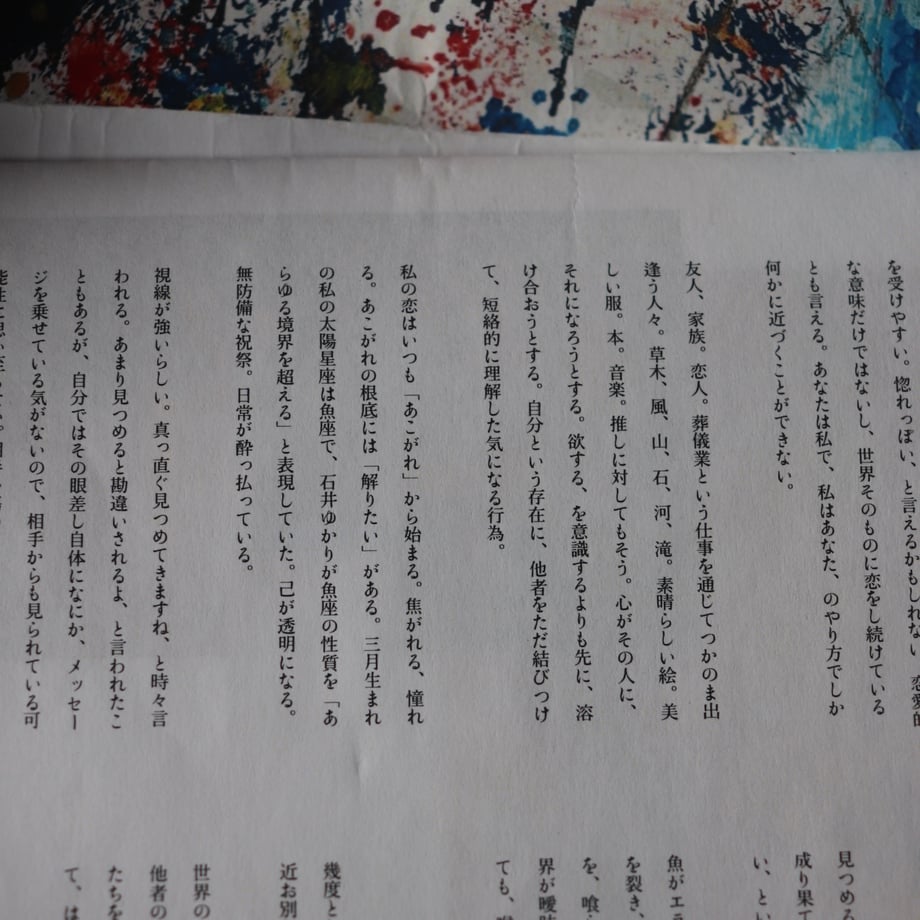 を受けやすい。惚れっぽい、と言えるかもしれない
な意味だけではないし、世界そのものに恋をし続けている
とも言える。あなたは私で、私はあなた、のやり方でしか
何かに近づくことができない。
友人、家族。恋人。葬儀業という仕事を通じてつかのま出
逢う人々。草木、風、山、石、河、滝。素晴らしい絵。美
しい服。本。音楽。推しに対してもそう。心がその人に、
それになろうとする。欲する、を意識するよりも先に、溶
け合おうとする。自分という存在に、他者をただ結びつけ
て、短絡的に理解した気になる行為。
私の恋はいつも「あこがれ」から始まる。焦がれる、憧れ
る。あこがれの根底には「解りたい」がある。三月生まれ
の私の太陽星座は魚座で、石井ゆかりが魚座の性質を「あ
らゆる境界を超える」と表現していた。己が透明になる。
無防備な祝祭。日常が酔っ払っている。
視線が強いらしい。真っ直ぐ見つめてきますね、と時々言
われる。あまり見つめると勘違いされるよ、と言われたこ
ともあるが、自分ではその眼差し自体になにか、メッセー
ジを乗せている気がないので、相手からも見られている可
見つめる
成り果て
い、と
魚がエラ
を裂き、
を、喰
界が曖昧
ても、
幾度と
近お別
世界の
他者の
たちを
て、は